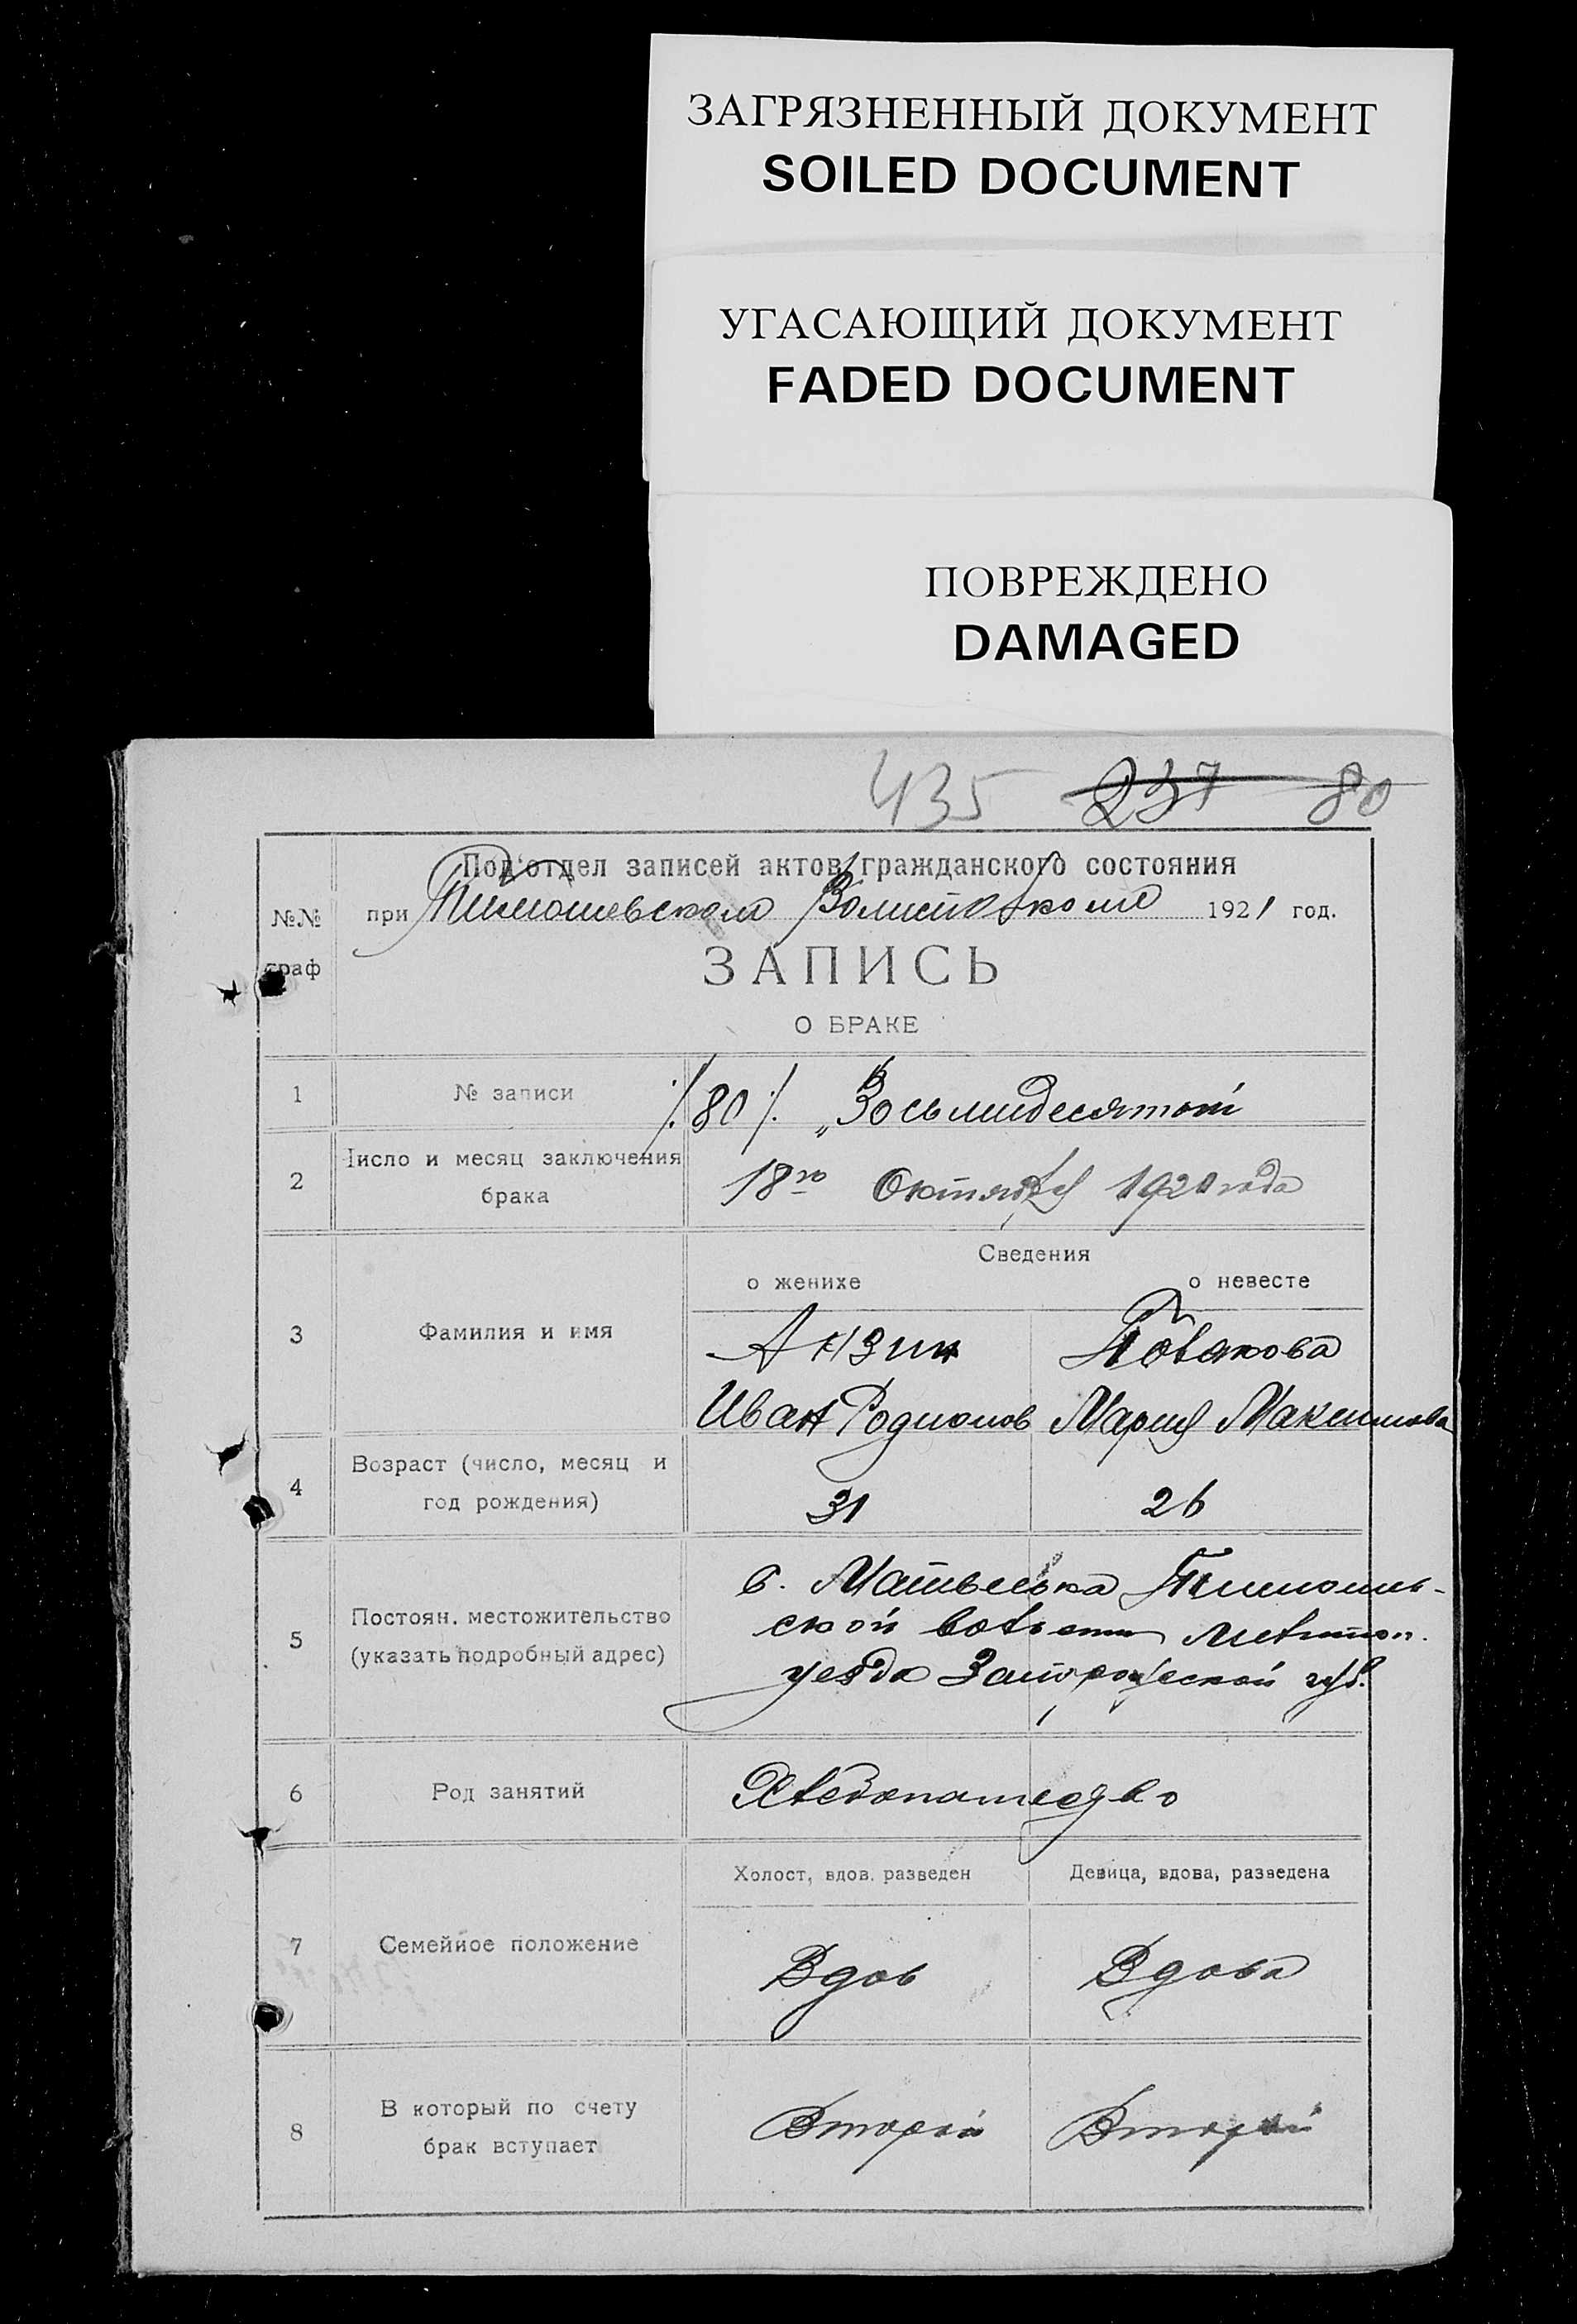 ЗАГРЯЗНЕННЫЙ ДОКУМЕНТ
SOILED DOCUMENT
УГАСАЮЩИЙ ДОКУМЕНТ
FADED DOCUMENT
ПОВРЕЖДЕНО
DAMAGED
435 237 80
№№ граф
Под'отдел записей актов гражданского состояния
при Тимошевском Волисполкоме 1921 год.
ЗАПИСЬ
О БРАКЕ
1 № записи ./80/. „Восьмидесятый
2 Число и месяц заключения брака 18го Октября 1921 года
Сведения
о женихе о невесте
3 Фамилия и имя
Анзин
Иван Родионов Мария Максимова
4 Возраст (число, месяц и год рождения) 31 26
5 Постоян. местожительство (указать подробный адрес)
с. Тимошев-
ской волости Мелитоп.
уезда Запорожеской губ.
6 Род занятий Хлебопашество
Холост, вдов. разведен Девица, вдова, разведена
7 Семейное положение Вдов Вдова
8 В который по счету брак вступает Второй Второй